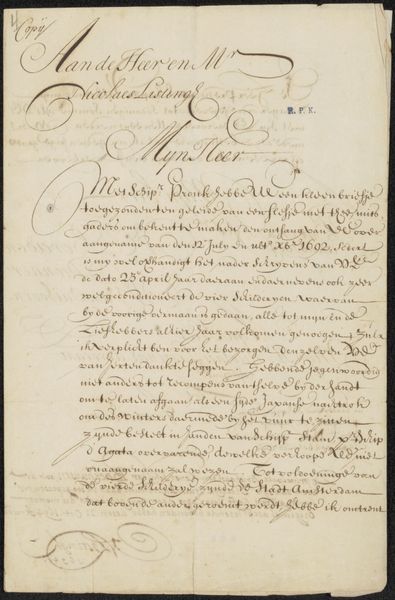 Copij
Aan de Heer en Mr
Nicolaes Listingh
R. P. K.
Myn Heer
Met Schipr Pronk hebbe UE een kleen briefje
toegezonden ten geleide van een flesje met thee mits
gaders om bekent te maken den ontfang van UE over
aangename van den 12 July en 26 1692, zedert
is my wel overhandigt het nader schryvens van UE
de dato 25 april Jaar daeraan en daernevens ook zeer
wel geconditioneert de vier schilderyen waervan
by de voorige vermaan is gedaan, alle tot myn en de
Liefhebbers alhier Jaar volkomen genoegen, zulx
ik verplicht ben voor het bezorgen den zelven UE
van herten dank te seggen. Hebbende jegenwoordig
niet anders tot recompens van 't selve by der handt
om te laten afgaan als een syde Japanse nachtrok
om des Winters daermede by het vuur te zitten
zynde bestelt in handen van schippr Stam op 't schip
d'Agata overvarende, dewelke verhoope UE niet
onaangenaam zal wezen. Tot voldoeninge van
de vierde schilderye zynde de Stadt Amsterdam
dat boven de ander geroemt werdt hebbe ik omtrent